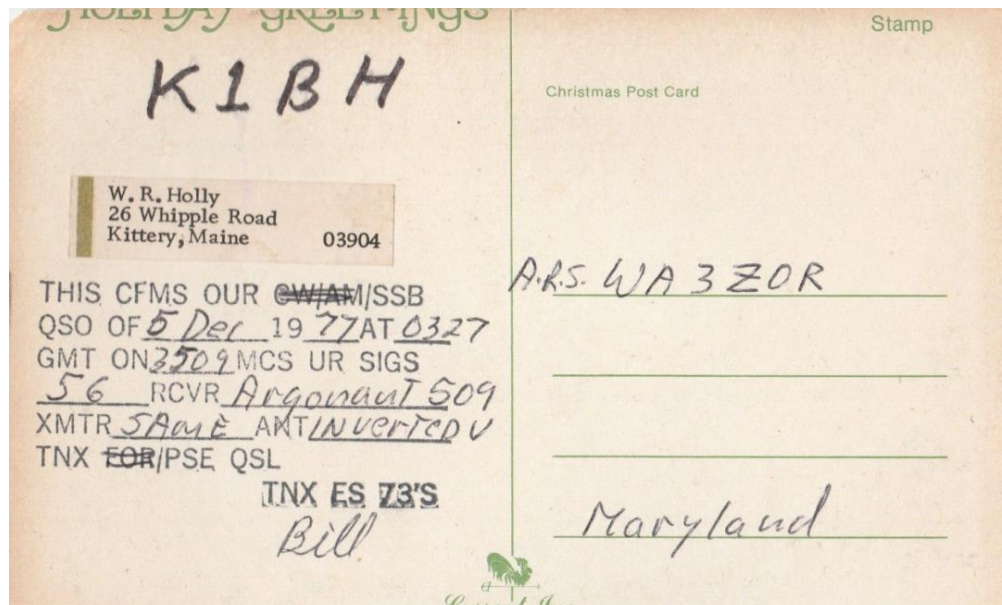 HOLIDAY GREETINGS
K1BH
W. R. Holly
26 Whipple Road
Kittery, Maine 03904
THIS CFMS OUR CW/AM/SSB
QSO OF 5 Dec 19 77 AT 0327
GMT ON 3509 MCS UR SIGS
56 RCVR Argonaut 509
XMTR SAME ANT INVERTED V
TNX FOR/PSE QSL
TNX ES 73'S
Bill
Stamp
Christmas Post Card
A.R.S. WA3ZOR
Maryland
Current Inc